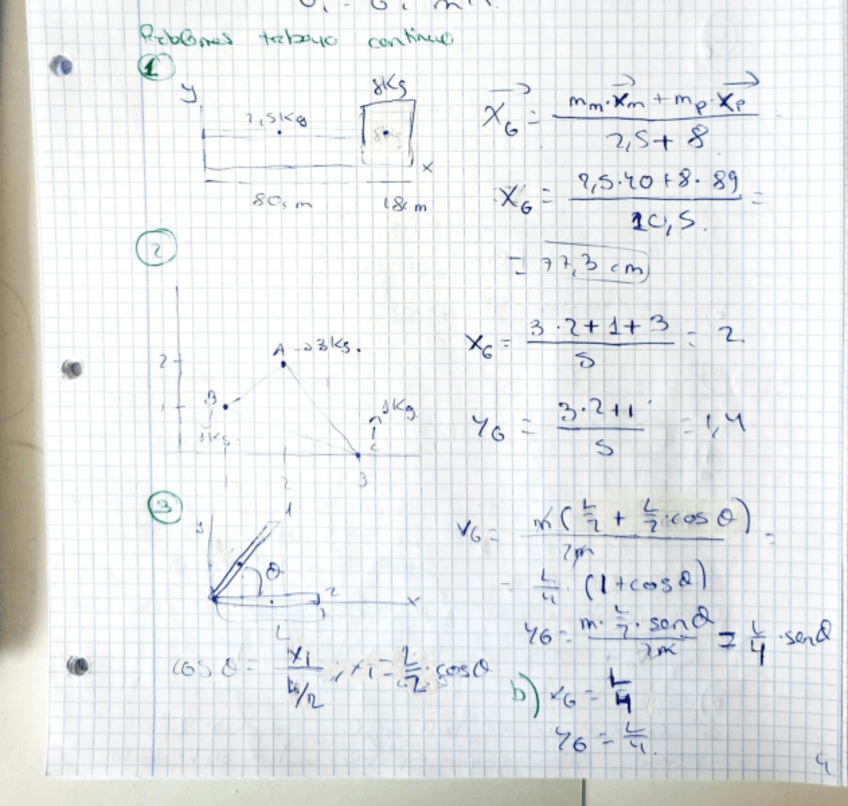 Problemas trabajo continuo
1
y
8Kg
2,5Kg
x
80cm
18cm
X_G = (m_m·X_m + m_p·X_p) / (2,5 + 8)
X_G = (2,5·40 + 8·89) / 10,5. =
= 77,3 cm
2
2
1
A → 3Kg.
B
1Kg
1Kg
C
2
3
X_G = (3·2 + 1 + 3) / 5 = 2
Y_G = (3·2 + 1) / 5 = 1,4
3
y
1
θ
2
x
L
X_G = m(L/2 + L/2·cos θ) / 2m =
= L/4 · (1+cos θ)
Y_G = m·L/2·sen θ / 2m = L/4 · sen θ
cos θ = X_1 / L/2 ; X_1 = L/2·cos θ
b) X_G = L/4
Y_G = L/4.
4